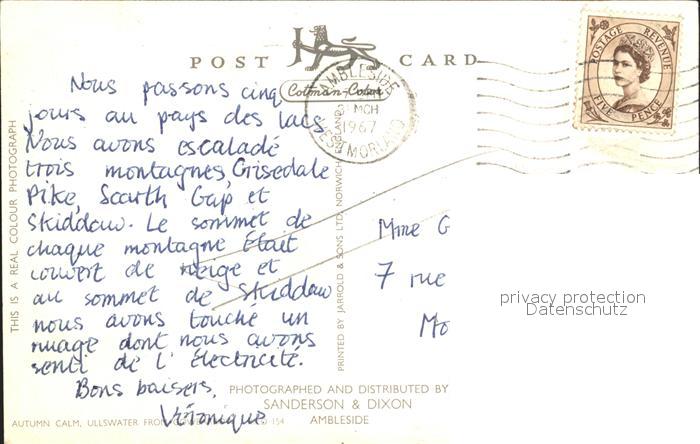 POST CARD
Cotman-Color
AMBLESIDE
31 MCH
1967
WESTMORLAND
POSTAGE REVENUE
FIVE PENCE
Nous passons cinq
jours au pays des lacs.
Nous avons escaladé
trois montagnes, Grisedale
Pike, Scarth Gap et
Skiddaw. Le sommet de
chaque montagne était
couvert de neige et
au sommet de Skiddaw
nous avons touché un
nuage dont nous avons
senti de l'électricité.
Bons baisers,
Véronique
Mme G
7 rue
Mo
privacy protection
Datenschutz
THIS IS A REAL COLOUR PHOTOGRAPH
PRINTED BY JARROLD & SONS LTD, NORWICH, ENGLAND
PHOTOGRAPHED AND DISTRIBUTED BY
SANDERSON & DIXON
AMBLESIDE
AUTUMN CALM, ULLSWATER FROM 154